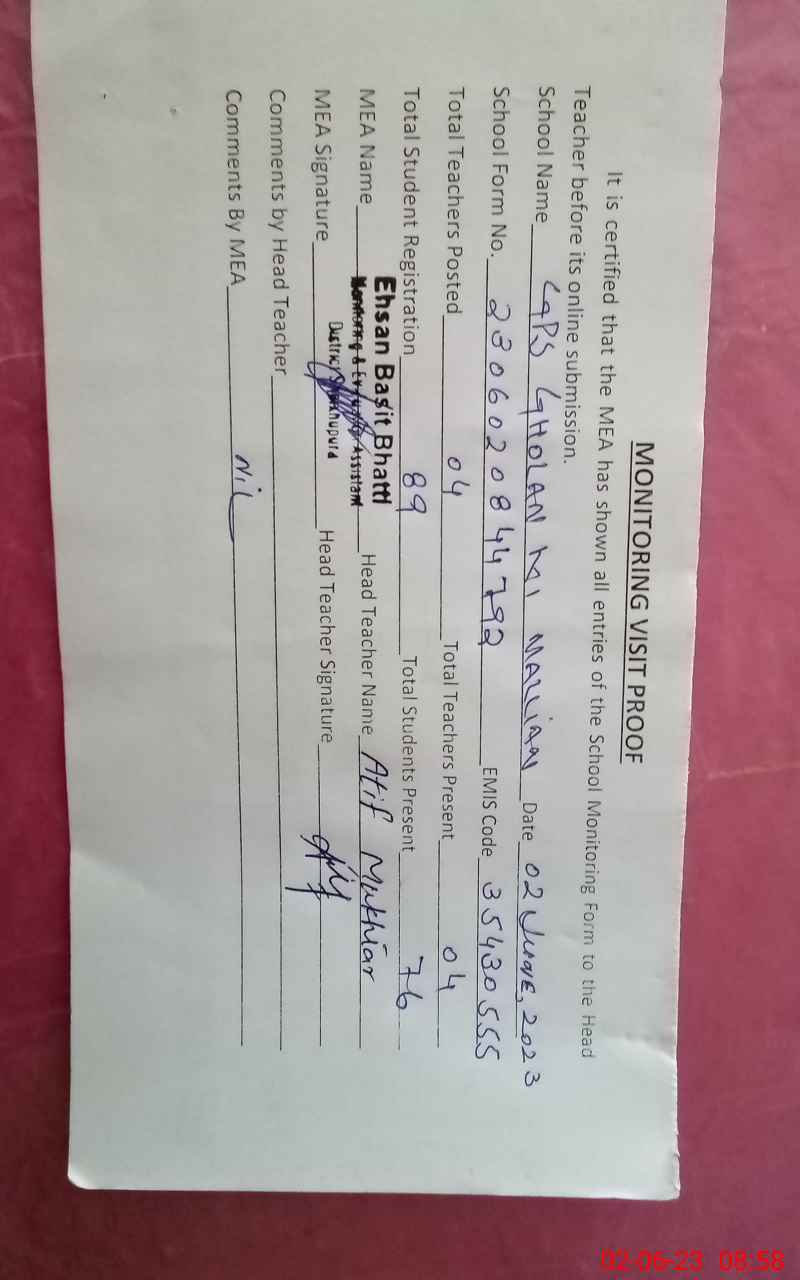 MONITORING VISIT PROOF
It is certified that the MEA has shown all entries of the School Monitoring Form to the Head
Teacher before its online submission.
School Name GPS GHOLAN MI MALLIAN Date 02 JUNE, 2023
School Form No. 2306020844792 EMIS Code 35430555
Total Teachers Posted 04 Total Teachers Present 04
Total Student Registration 89 Total Students Present 76
MEA Name Ehsan Basit Bhatti Head Teacher Name Atif Mukhtar
Monitoring & Evaluation Assistant
District Sheikhupura
MEA Signature Head Teacher Signature
Comments by Head Teacher
Comments By MEA Nil
02-06-23 08:58